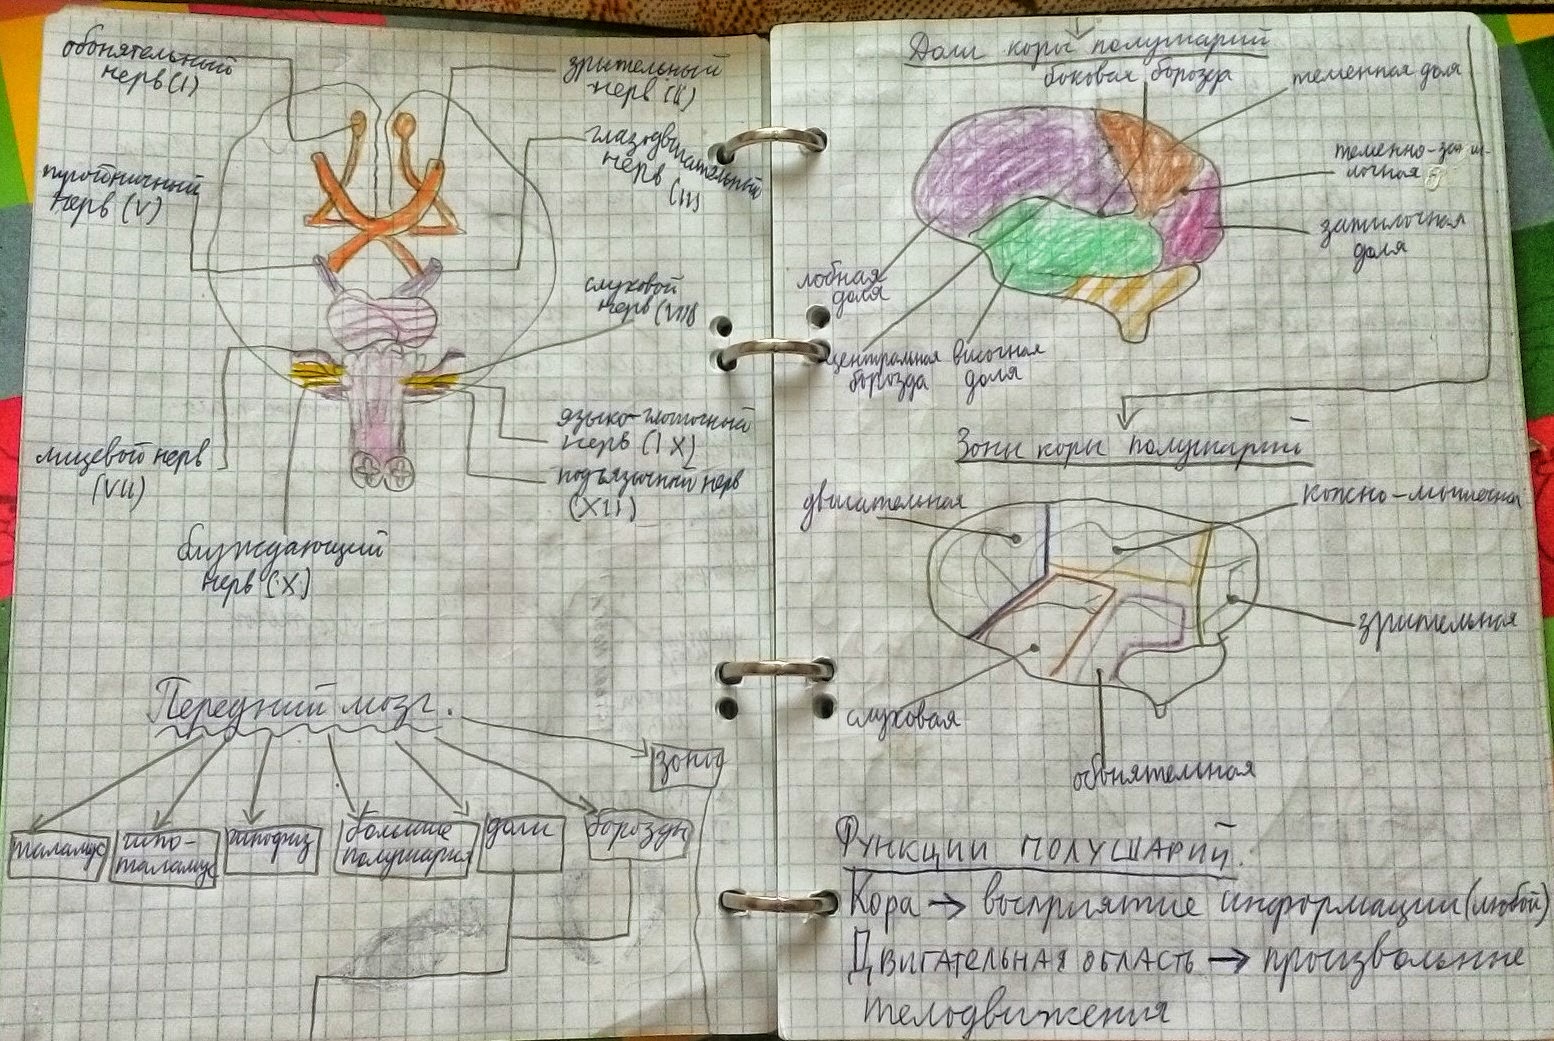 обонятельный
нерв (I)
зрительный
нерв (II)
глазодвигательный
нерв
(III)
нерв (V)
слуховой
нерв (VIII)
языко-глоточный
нерв (IX)
лицевой нерв
(VII)
подъязычный нерв
(XII)
блуждающий
нерв (X)
Передний мозг.
зоны
таламус
гипо-
таламус
гипофиз
большие
полушария
доли
борозды
Доли коры полушарий
боковая борозда
теменная доля
теменно-заты-
лочная
затылочная
доля
лобная
доля
центральная
борозда
височная
доля
Зоны коры полушарий
двигательная
кожно-мышечная
зрительная
слуховая
обонятельная
Функции полушарий.
Кора → восприятие информации (любой)
Двигательная область → произвольные
телодвижения